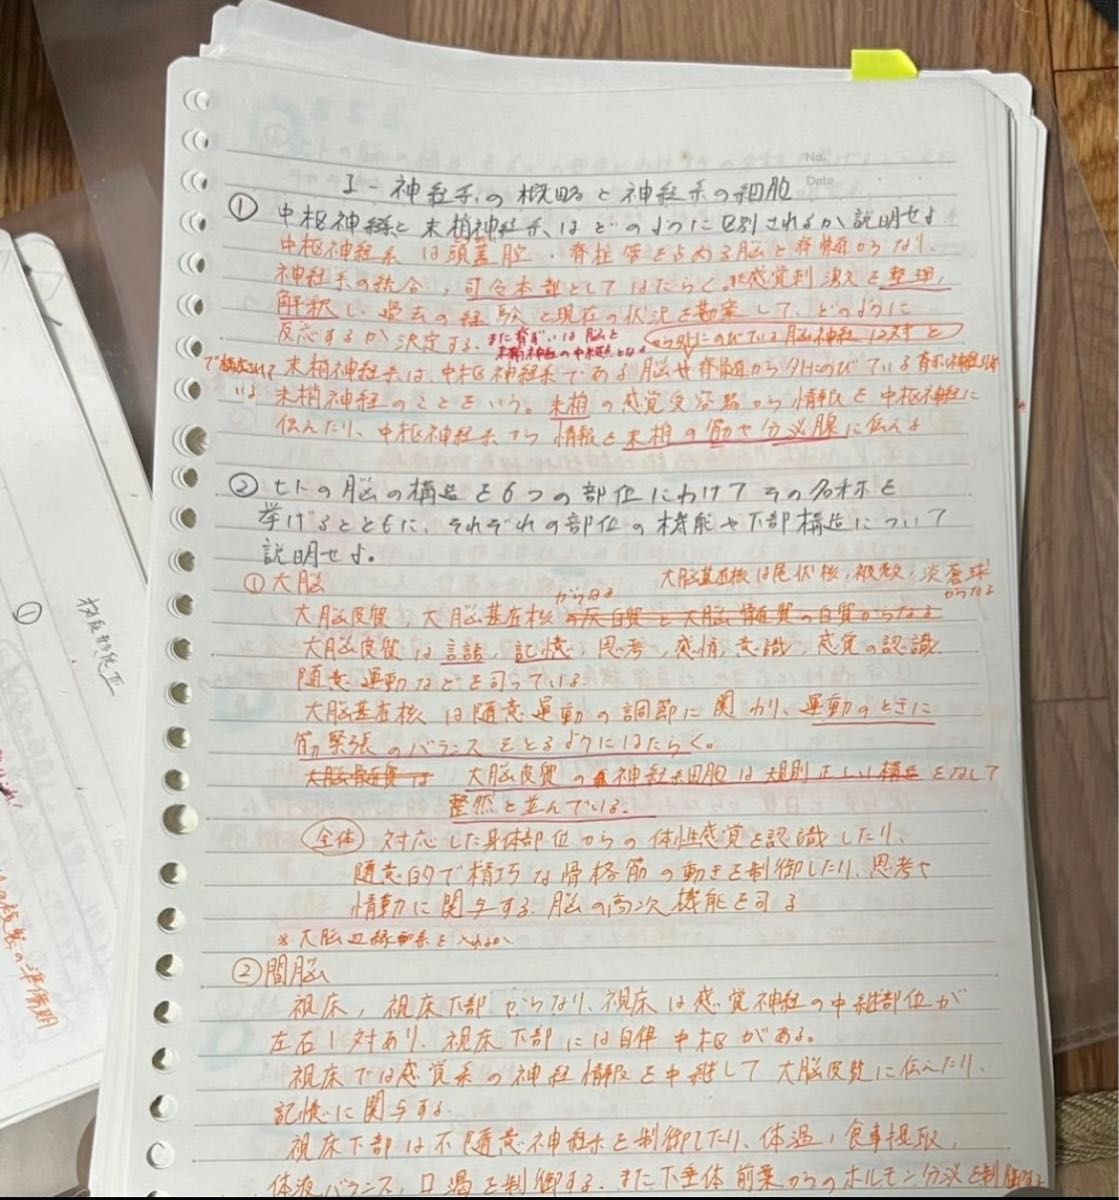 No.
Date
I - 神経系の概略と神経系の細胞
① 中枢神経と末梢神経系はどのように区別されるか説明せよ
中枢神経系は頭蓋腔・脊柱管を占める脳と脊髄からなり、
神経系の統合、司令本部としてはたらく。感覚刺激を整理、
解釈し、過去の経験と現在の状況を勘案して、どのように
反応するか決定する。また脊ずいは脳と
末梢神経の中継点となる
から外にのびている脳神経12対と
末梢神経系は、中枢神経系である脳や脊髄から外にのびている脊ずい神経31対
で構成されて
いる
末梢神経のことをいう。末梢の感覚受容器から情報を中枢神経に
伝えたり、中枢神経系から情報を末梢の筋や分泌腺に伝える
② ヒトの脳の構造を6つの部位にわけてその名称を
挙げるとともに、それぞれの部位の機能や下部構造について
説明せよ。
① 大脳
大脳基底核は尾状核,被殻,淡蒼球
からなる
からなる
大脳皮質,大脳基底核の灰白質と大脳髄質の白質からなる
大脳皮質は言語,記憶,思考,感情,意識,感覚の認識
随意運動などを司っている
大脳基底核は随意運動の調節に関わり、運動のときに
筋緊張のバランスをとるようにはたらく。
大脳髄質は 大脳皮質の神経細胞は規則正しい構造をなして
整然と並んでいる。
全体 対応した身体部位からの体性感覚を認識したり、
随意的で精巧な骨格筋の動きを制御したり、思考や
情動に関与する。脳の高次機能を司る
※大脳辺縁系を入れるか
② 間脳
視床,視床下部からなり、視床は感覚神経の中継部位が
左右1対あり、視床下部には自律中枢がある。
視床では感覚系の神経情報を中継して大脳皮質に伝えたり、
記憶に関与する。
視床下部は不随意神経系を制御したり、体温,食事摂取,
体液バランス,口渇を制御する。また下垂体前葉からのホルモン分泌を制御する
①
の授業の準備期